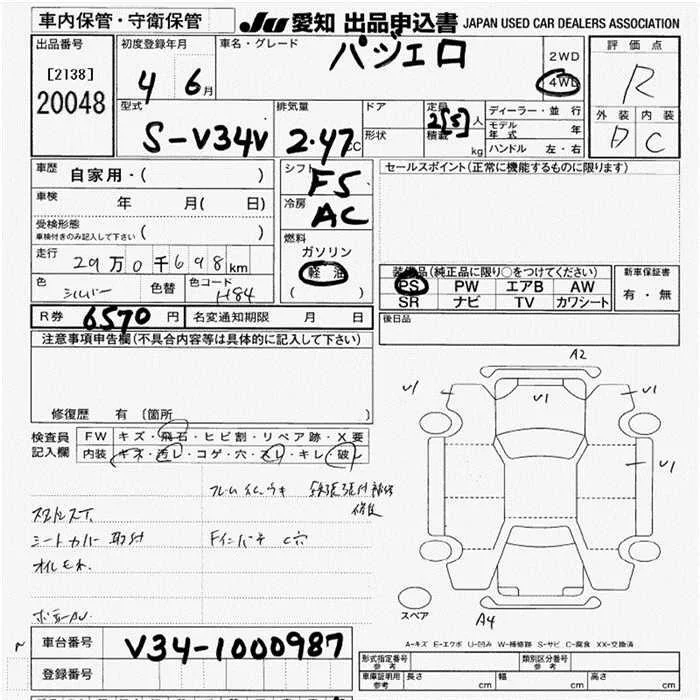 車内保管・守衛保管 JU 愛知 出品申込書 JAPAN USED CAR DEALERS ASSOCIATION
出品番号 [2138] 20048
初度登録年月 4 6月
車名・グレード パジェロ
2WD
4WD
評価点 R
外装 内装
D C
型式 S-V34V
排気量 2.47 CC
ドア
形状
定員 人
積載 kg
ディーラー・並行
モデル年式 年
ハンドル 左・右
車歴 自家用・( )
シフト F5
セールスポイント(正常に機能するものに限ります)
車検 年 月( 日)
冷房 AC
受検形態
車検付きのみ記入して下さい ( )
燃料
ガソリン
軽油
( )
走行 29万0千698km
色 シルバー 色替 色コード H84
装備品(純正品に限り○をつけてください)
PS PW エアB AW
SR ナビ TV カワシート
新車保証書
有・無
R券 6570円 名変通知期限 月 日
後日品
注意事項申告欄(不具合内容等は具体的に記入して下さい)
修復歴 有 (箇所 )
検査員記入欄
FW キズ・飛石・ヒビ割・リペア跡・X要
内装 キズ・汚レ・コゲ・穴・スレ・キレ・破レ
シートカバー 取付
オイルモレ
A2
V1
V1
V1
V1
スペア
A4
車台番号 V34-1000987
登録番号
A-キズ E-エクボ U-凹み W-補修跡 S-サビ C-腐食 XX-交換済
形式指定番号 参考
類別区分番号 参考
車庫証明用 参考 長さ cm 幅 cm 高さ cm